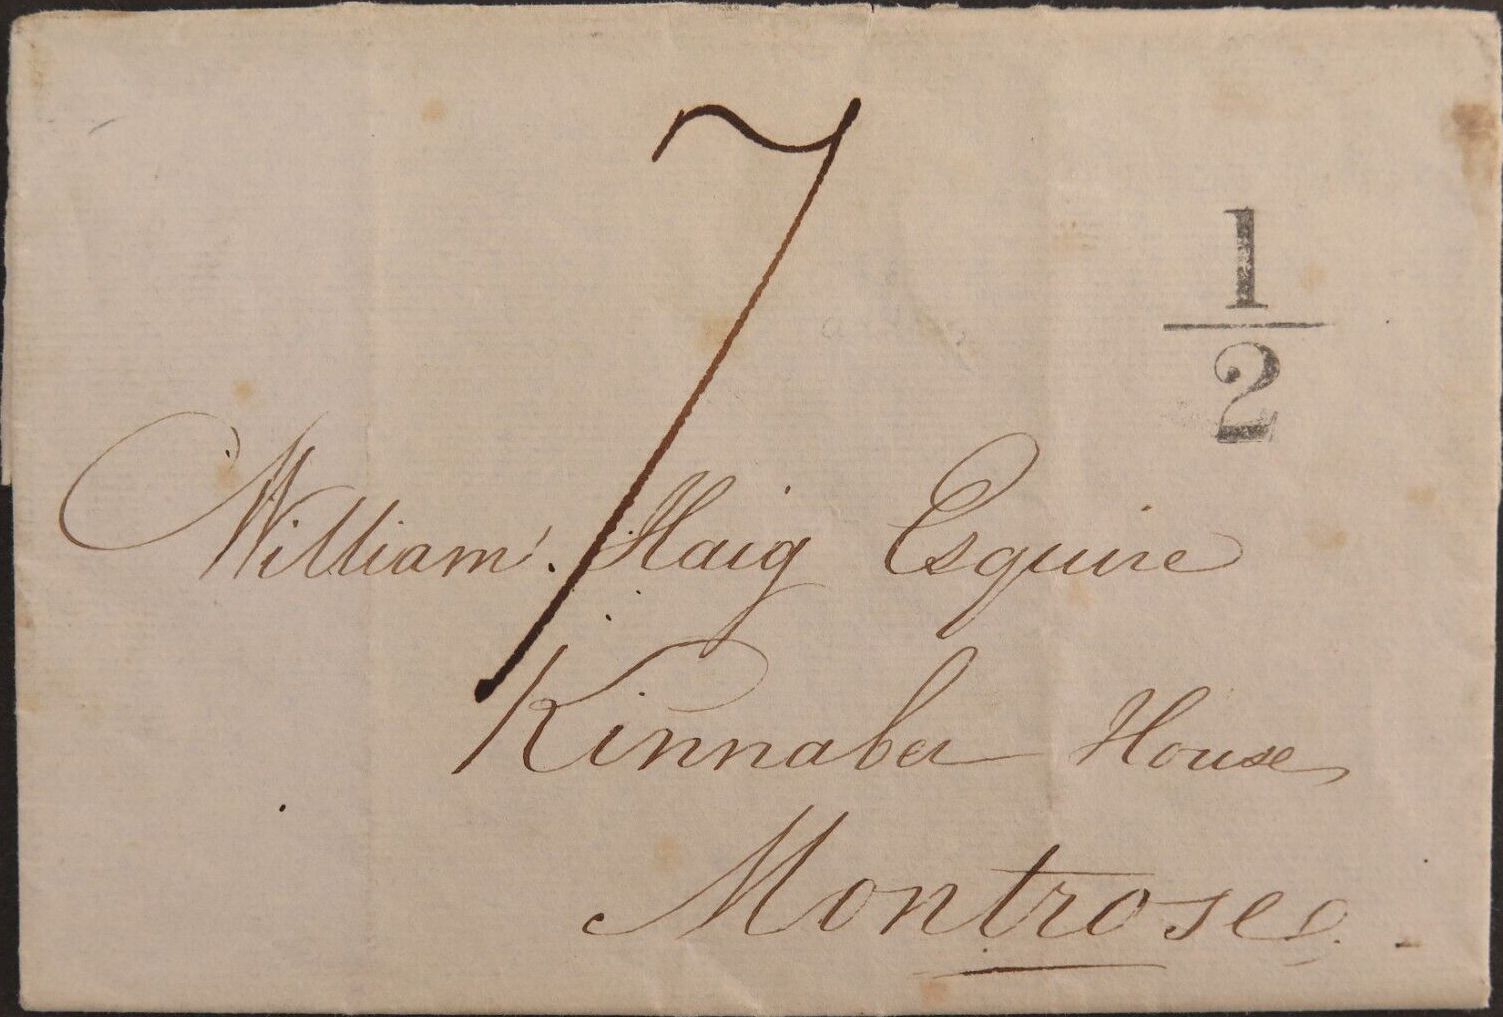 7
1
2
William. Haig Esquire
Kinnaber House
Montrose